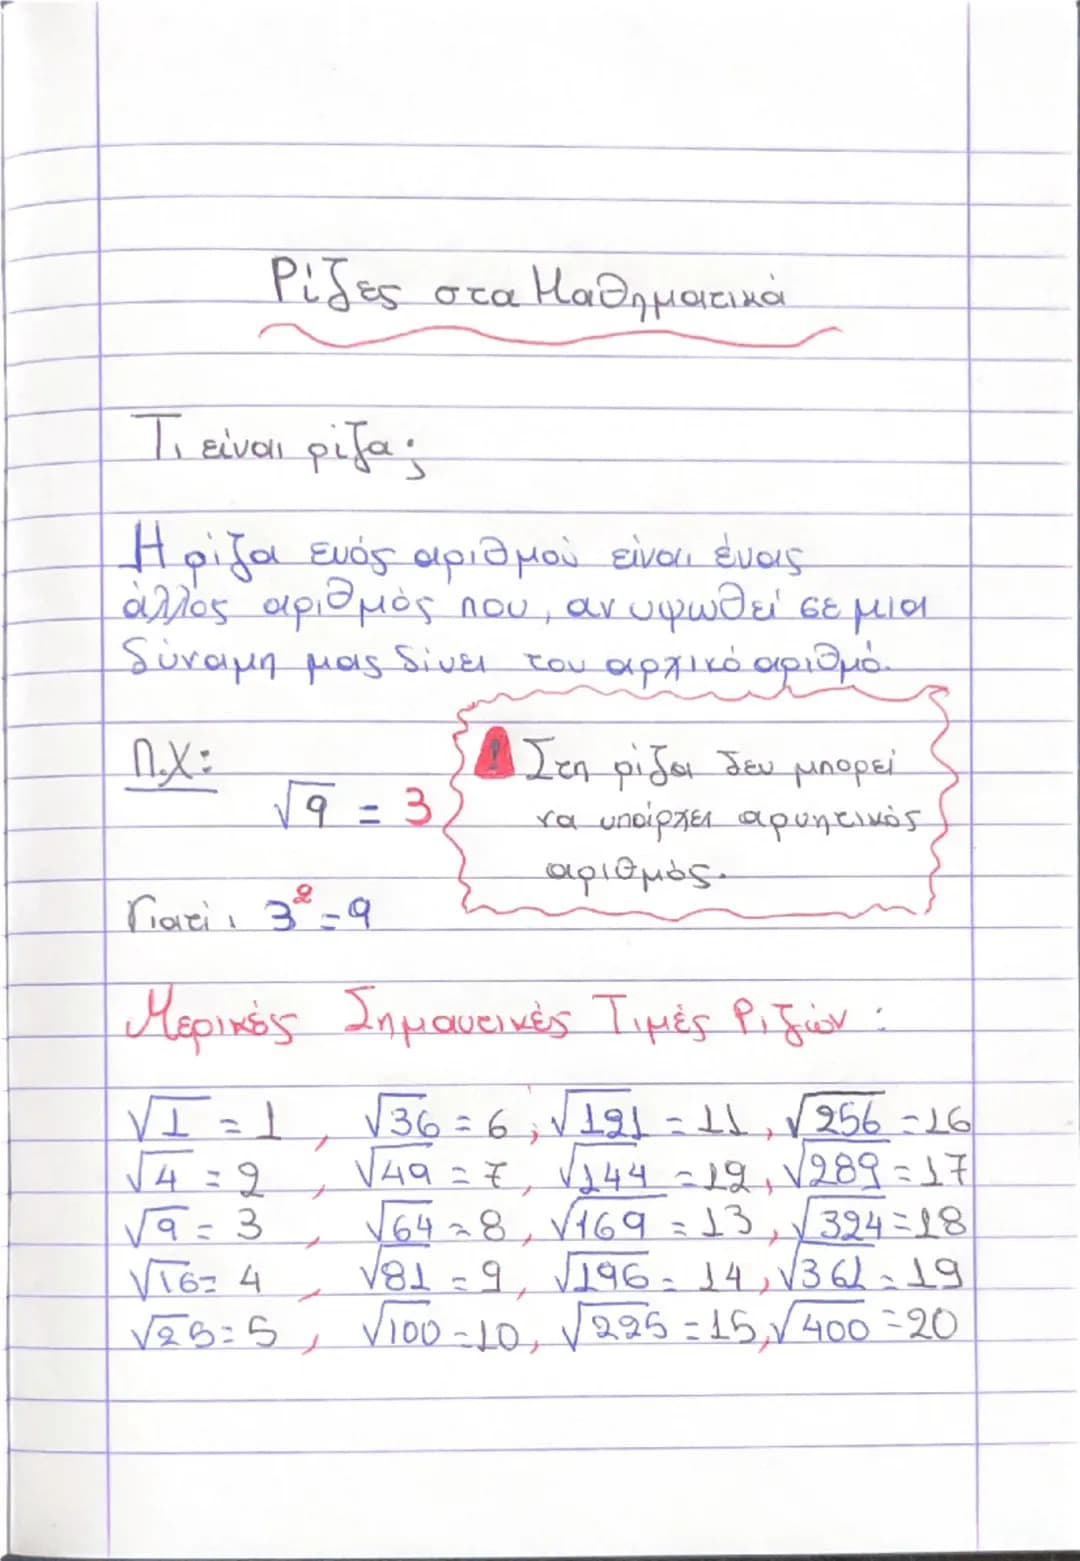 Ρίζες στα Μαθηματικά
Τι είναι ρίζα;
Η ρίζα ενός αριθμού είναι ένας
άλλος αριθμός που, αν υψωθεί σε μια
δύναμη μας δίνει τον αρχικό αριθμό.
Π.Χ:
√9 = 3
! Στη ρίζα δεν μπορεί
να υπάρχει αρνητικός
αριθμός.
Γιατί: 3²=9
Μερικές Σημαντικές Τιμές Ριζών:
√1 = 1, √36 = 6, √121 = 11, √256 = 16
√4 = 2, √49 = 7, √144 = 12, √289 = 17
√9 = 3, √64 = 8, √169 = 13, √324 = 18
√16 = 4, √81 = 9, √196 = 14, √361 = 19
√25 = 5, √100 = 10, √225 = 15, √400 = 20